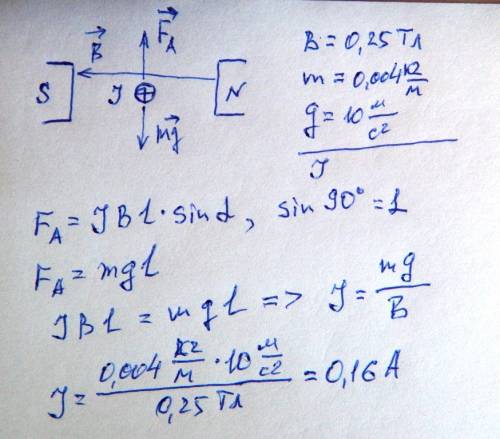 F⃗_A
B⃗
S
I ⊕
N
m⃗g
B = 0,25 Тл
m = 0,004 кг/м
g = 10 м/с²
I
F_A = I B l · sin α, sin 90° = 1
F_A = m g l
I B l = m g l => I = mg/B
I = (0,004 кг/м · 10 м/с²)/(0,25 Тл) = 0,16 А